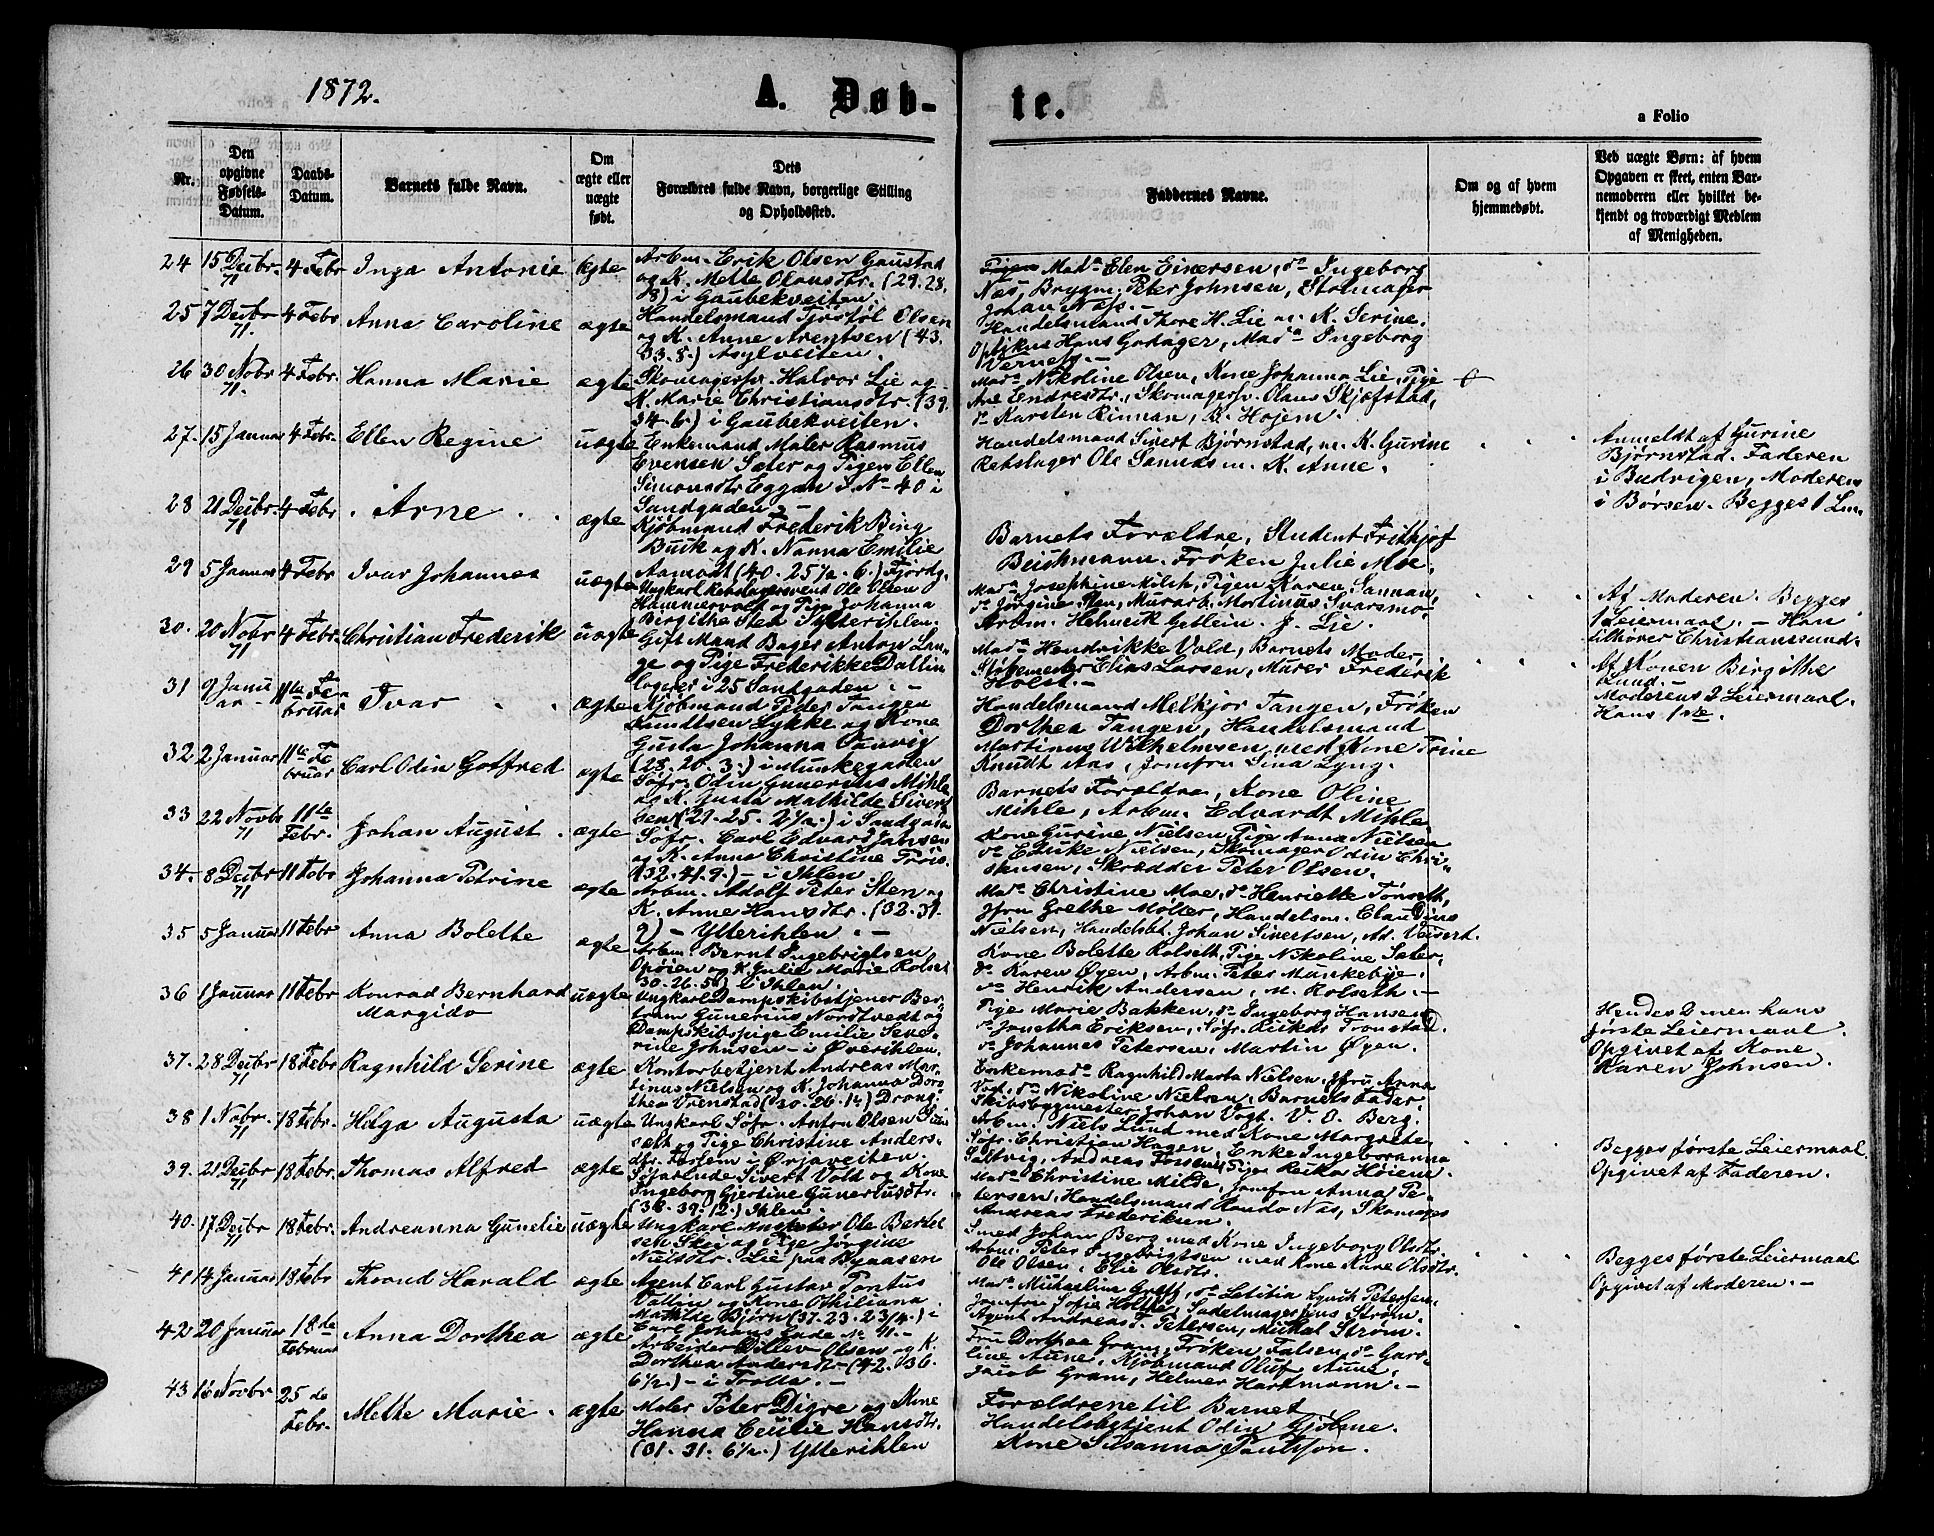 1872.
A. Døb-
te.
a Folio
Nr.
Den opgivne Fødsels-Datum.
Daabs-Datum.
Barnets fulde Navn.
Om ægte eller uægte født.
Dets Forældres fulde Navn, borgerlige Stilling og Opholdssted.
Faddernes Navne.
Om og af hvem hjemmedøbt.
Ved uægte Børn: af hvem Opgaven er skeet, enten Barnemoderen eller hvilket bekjendt og troværdigt Medlem af Menigheden.
24 15 Decbr. 71 4 Febr Inga Antonie Ægte
Arbm. Erik Olsen Gaustad
og K. Mette Olausdtr. (29. 28.
8) i Gaubekveiten.
Madm Elen Einersen, do Ingeborg
Næs, Brygm. Peter Johnsen, Stolmager
Johan Næss.
25 7 Decbr 71. 4 Febr. Anna Caroline ægte
Handelsmand Tjøstøl Olsen
og K. Anne Arentsen (43.
33. 8.) Asylveiten.
Handelsmand Thore H. Lie m. K. Serine.
Optikus Hans Gaarager, Madm Ingeborg
26 30 Novbr 71. 4 Febr. Hanna Marie ægte
Skomagersv. Halvor Lie og
K. Marie Christiansdtr. (39.
34. 6.) i Gaubekveiten.
Madm Nikoline Olsen, Kone Johanna Lie, Pige
Ane Endresdtr., Skomagersv. Olaus Skjefstad,
do Karsten Rinnan, B. Hojem.
27. 15 Januar 4 Febr. Ellen Regine uægte
Enkemand Maler Rasmus
Evensen Sæter og Pigen Ellen
Simonsdtr Eggan i No 40 i
Sandgaden.
Handelsmand Sivert Bjørnstad, m. K. Gurine
Rebslager Ole Sannes m. K. Anne.
Anmeldt af Gurine
Bjørnstad. Faderen
i Budvigen, Moderen
i Børsen. Begges 1 Lm.
28 21 Decbr. 71 4 Febr Arne ægte
Kjøbmand Frederik Bing
Buck og K. Nanna Emilie
Aamodt (40. 25 1/2. 6.) Fjordg.
Barnets Forældre, Student Frithjof
Buchmann. Frøken Julie Moe.
29 5 Januar 4 Febr Ivar Johannes uægte
Ungkarl Rebslagersvend Ole Olsen
Hammervolt og Pige Johanna
Birgithe Sten i Ytterihlen.
Madm Josephine Milch, Pigen Karen Sannan,
do Jørgine Moen, Murarb. Martinus Svarsmo
Arbm. Henrik Getlein. J. Lie.
Af Moderen. Begges
1 Leiermaal. Han
tilhører Christianssund.
30. 20 Novbr 71 4 Febr. Christian Frederik uægte
Gift Mand Bager Anton Lan-
ge og Pige Frederikke Dallin
logerer i 25 Sandgaden.
Madm Hendrikke Vold, Barnets Moder,
Støbemester Elias Larsen, Murer Frederik
Holst.
Af Konen Birgithe
Lund.
Moderens 2 Leiermaal.
Hans 1ste.
31 9 Janu ar 11te Februar Ivar ægte
Kjøbmand Peder Tangen
Knudtsen Lykke og Kone
Gusta Johanna Tanvig
(28. 20. 3.) i Munkegaden
Handelsmand Melkjor Tangen, Frøken
Dorthea Tangen, Handelsmand
Martinus Wilhelmsen med Kone Trine
Knudt Aas, Jomfru Sina Lyng.
32 2 Januar 11te Februar Carl Odin Gotfred ægte
Søfr. Odin Gunerius Mihle
og K. Gusta Mathilde Sivert
sen (29. 25. 2 1/2.) i Sandgaden
Barnets Forældre, Kone Oline
Mihle, Arbm. Edvardt Mihle
33 22 Novbr 71 11te Febr. Johan August ægte
Søfr. Carl Edvard Jansen
og K. Anna Christine Friis.
(32. 41. 9.) - i Ihlen.
Kone Gurine Nielsen, Pige Anna Nielsen
do Eluke Nielsen, Skomager Odin Chri-
stensen, Skrædder Peter Olsen.
34. 8 Decbr 71 11 Febr Johanna Petrine ægte
Arbm. Adolf Peter Sten og
K. Anne Hansdtr. (32. 31.
2) - Ytterihlen.
Madm Christine Moe, do Henriette Tønseth,
Jfru Grethe Møller, Handelsm. Claudius
Nielsen, Handelsbt. Johan Sivertsen, Ad. Veisert.
35 5 Januar 11 Febr Anna Bolette ægte
Arbm. Bernt Ingebrigtsen
Opøien og K. Julie Marie Rolset
30. 26. 5) i Ihlen.
Kone Bolette Rolseth, Pige Nikoline Sæter,
do Karen Øyen, Arbm. Peter Munkebye.
do Henrik Andersen, M. Rolseth.
36 1 Januar 11 Febr Konrad Bernhard
Margido uægte
Ungkarl Dampskibstjener Ber-
tram Gunerius Nordtvedt og
Dampskibspige Emilie Seve-
rine Johnsen - i Øverihlen.
Pige Marie Bakken, do Ingeborg Hansen
do Janetha Eriksen, Søfr. Rikds Tronstad
do Johannes Petersen, Martin Øyen.
Hendes 2 men hans
første Leiermaal.
Opgivet af Kone
Karen Johnsen.
37. 28 Decbr 71 18 Febr Ragnhild Serine ægte
Kontorbetjent Andreas Mar-
tinus Nielsen og K. Johanna Doro
thea Vrenstad (30. 26. 1 1/2) Drong.
Enkemadm Ragnhild Marta Nielsen, Jfru Anna
Vad, do Nikoline Nielsen, Barnets Fader.
Skibsbygmester Johan Vogt. V. O. Berg.
38 1 Novbr. 71 18 Febr. Helga Augusta uægte
Ungkarl Søfr. Anton Olsen
og Pige Christine Anders-
dtr. Forsem i Ørjaveiten.
Arbm. Niels Lund med Kone Margrete
Søfr. Christian Hagen, Enke Ingeboranna
Saltvig, Andreas Forsem, Pige Reika Høiem.
Begges første Leiermaal.
Opgivet af Faderen.
39. 21 Decbr 71 18 Febr. Thomas Alfred ægte
Søfarende Sivert Vold og Kone
Ingeborg Gjertine Guneriusdtr.
(38. 39. 12.) Ihlen.
Madm Christine Milde, Jomfru Anna Pe-
tersen, Handelsmand Rando Næs, Skomager
Andreas Frederiksen.
40. 17 Decbr 71 18 Febr. Andreanna Gunelie uægte
Ungkarl Ole Bertel
sen Skei og Pige Jørgine
Nielsdtr. Lie paa Bynæsen
Smed Johan Berg med Kone Ingeborg Olsdtr.
Arbm. Peter Ingebrigtsen med Kone Kure Olsdtr.
Ole Olsen, Elie Olsdtr.
Begges første Leiermaal
Opgivet af Moderen.
41 14 Januar 18 Febr Thrond Harald ægte
Agent Carl Gustav Pontus
Vallin og Kone Othiliana
Mathilde Bjørn (37. 23. 2 3/4.) i
Carl Johans Gade No 11.
Madm Michaeline Greff, do Letitia Lynch Petersen,
Jomfru Sofie Holthe, Sadelmager Jens Strøm,
Agent Andreas T. Petersen, Michal Strøm.
42 20 Januar 18de Februar Anna Dorthea ægte
Arbeider Ditlev Olsen og K.
Dorthea Andersdtr (42. 36.
6 1/2.) - i Trolla.
Fru Dorthea Gram, Frøken Falsen, do Caro-
line Aune, Kjøbmand Oluf Aune,
Jacob Gram, Helmer Hartmann.
43 16 Novbr 25de Febr. Mette Marie. ægte
Maler Peter Digre og Kone
Hanna Cecilie Hansdtr.
(31. 31. 6 1/2.) Ytterihlen
Forældrene til Barnet
Handelsbetjent Odin Gjølme.
Kone Susanna Paulsson.